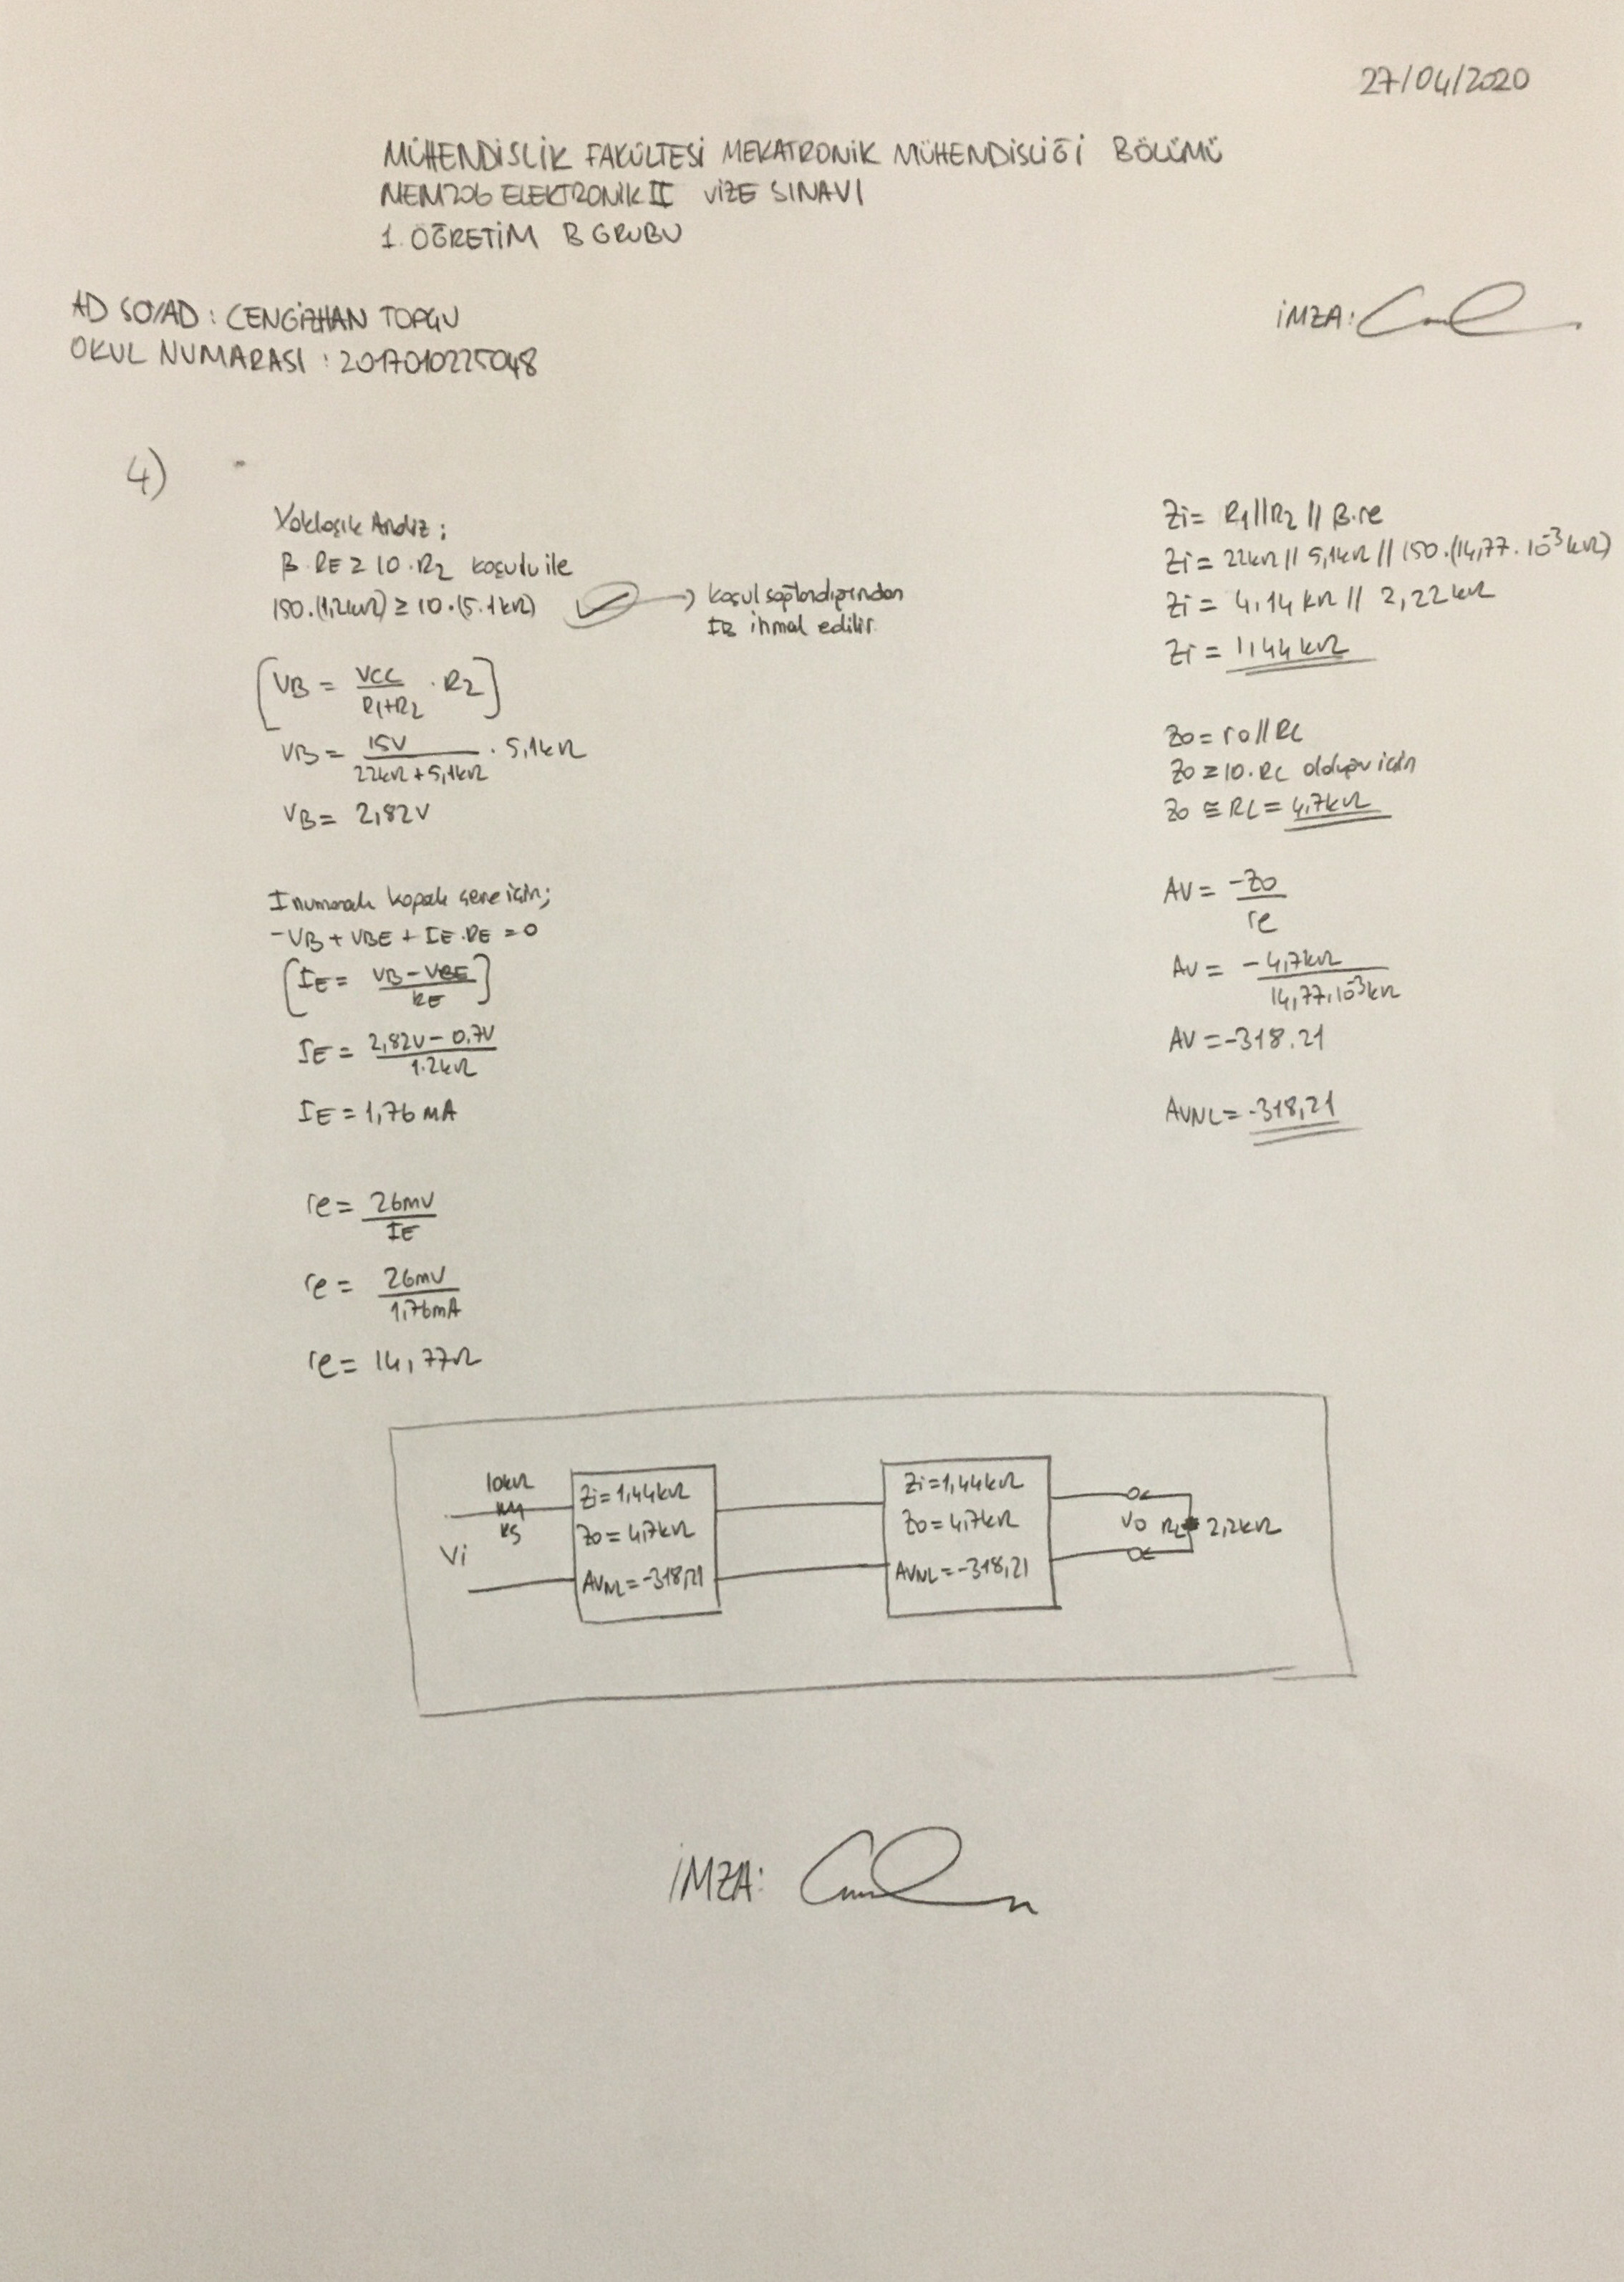 27/04/2020
MÜHENDİSLİK FAKÜLTESİ MEKATRONİK MÜHENDİSLİĞİ BÖLÜMÜ
MEM206 ELEKTRONİK II VİZE SINAVI
1. ÖĞRETİM B GRUBU
AD SOYAD : CENGİZHAN TOPÇU
OKUL NUMARASI : 2017010225048
İMZA:
4)
Yaklaşık Analiz ;
β.RE ≥ 10.R2 koşulu ile
150.(1,2kΩ) ≥ 10.(5.1kΩ) ✓ → koşul sağlandığından
IB ihmal edilir.
[VB = VCC / R1+R2 . R2]
VB = 15V / 22kΩ+5,1kΩ . 5,1kΩ
VB = 2,82V
I numaralı kapalı çevre için;
-VB + VBE + IE.RE = 0
[IE = VB-VBE / RE]
IE = 2,82V - 0,7V / 1.2kΩ
IE = 1,76 mA
re = 26mV / IE
re = 26mV / 1,76mA
re = 14,77Ω
Zi = R1//R2 // β.re
Zi = 22kΩ // 5,1kΩ // 150.(14,77.10⁻³kΩ)
Zi = 4,14 kΩ // 2,22kΩ
Zi = 1,44kΩ
Zo = ro//RC
Zo ≥ 10.RC olduğu için
Zo ≅ RC = 4,7kΩ
AV = -Zo / re
AV = -4,7kΩ / 14,77.10⁻³kΩ
AV = -318.21
AVNL = -318,21
10kΩ
RS
Vi
Zi=1,44kΩ
Zo=4,7kΩ
AVNL=-318,21
Zi=1,44kΩ
Zo=4,7kΩ
AVNL=-318,21
Vo RL 2,2kΩ
İMZA: